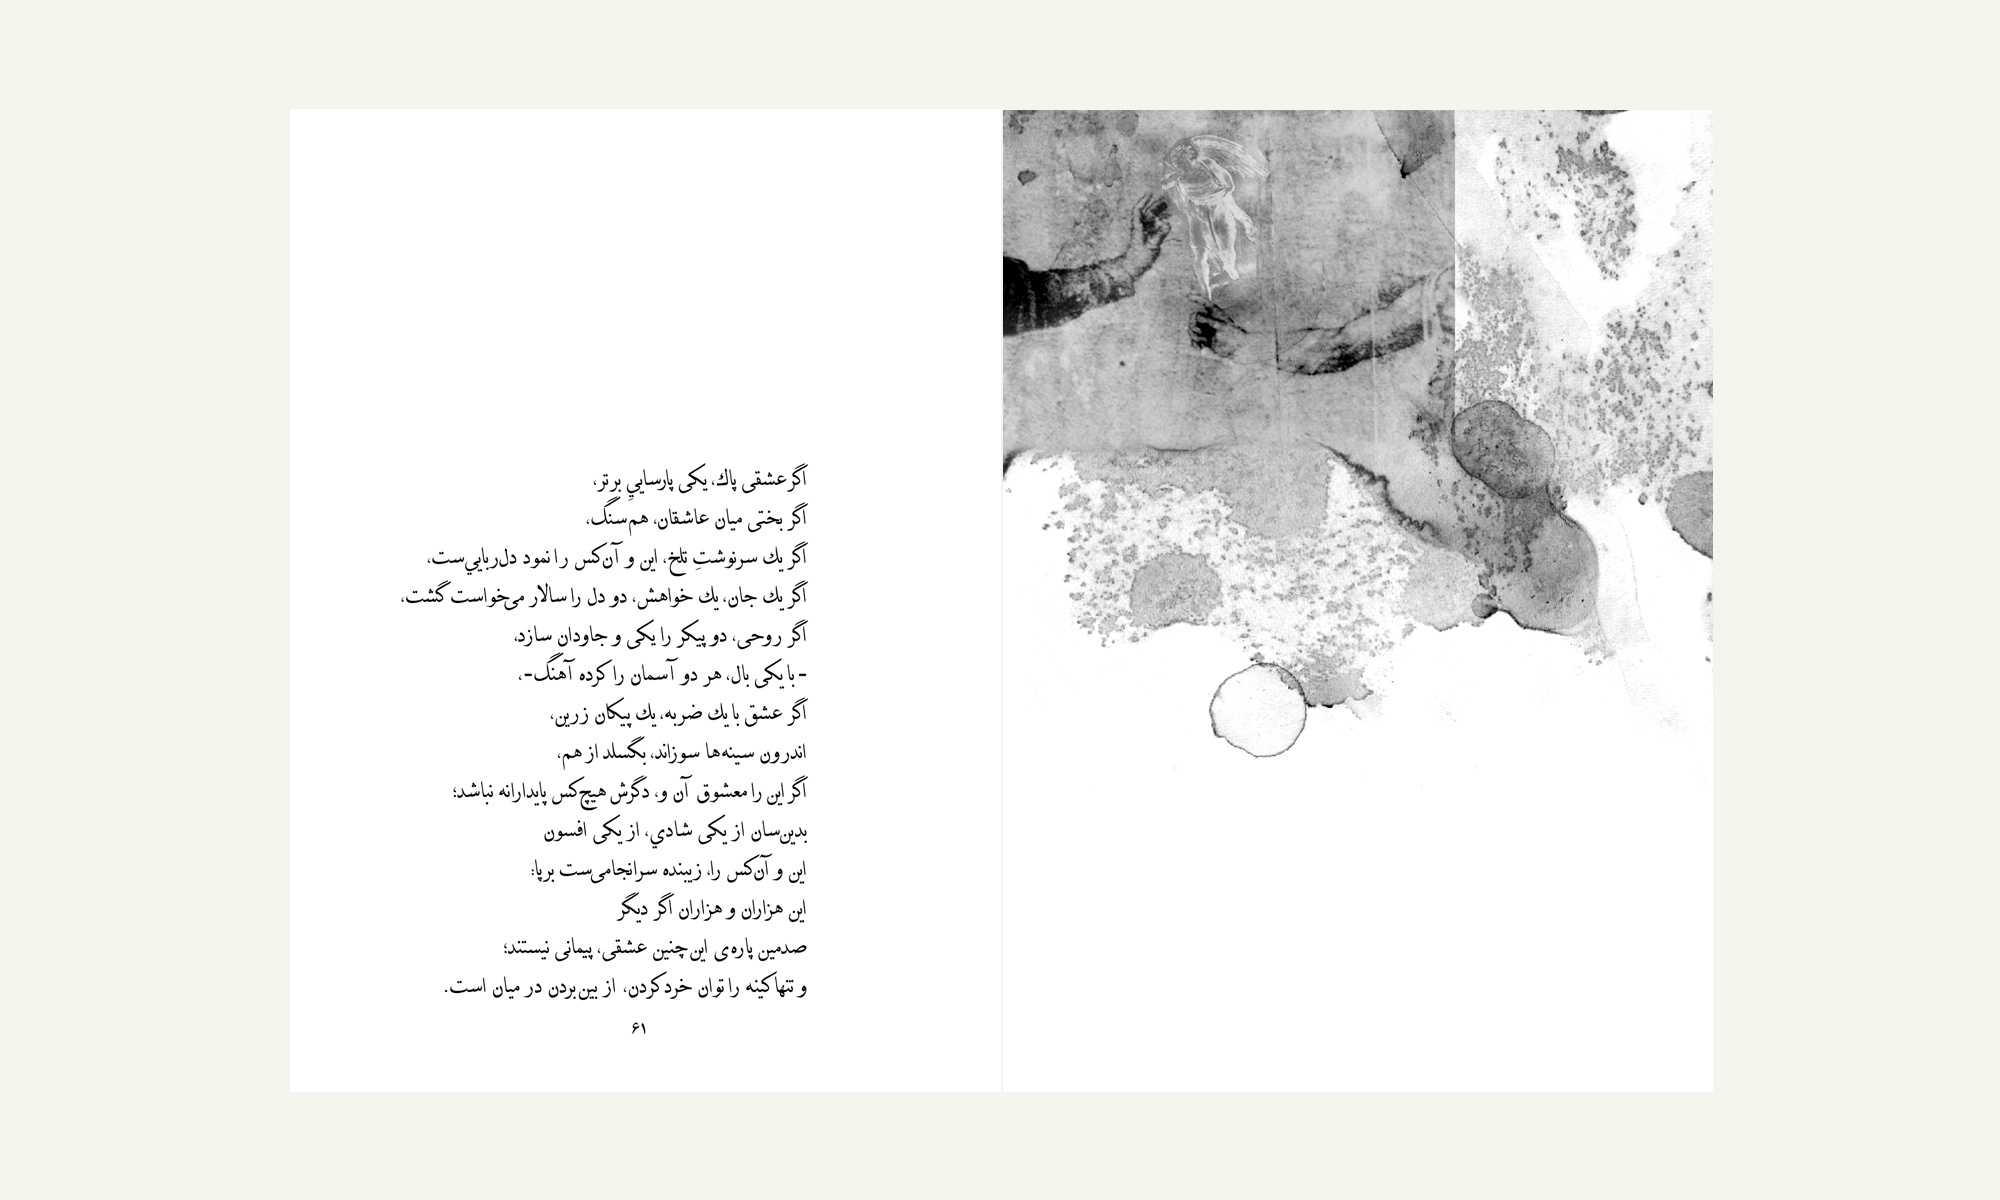 اگر عشقی پاك، یکی پارساییِ برتر،
اگر بختی میان عاشقان، هم‌سنگ،
اگر یك سرنوشتِ تلخ، این و آن‌کس را نمود دل‌ربایي‌ست،
اگر یك جان، یك خواهش، دو دل را سالار می‌خواست گشت،
اگر روحی، دو پیکر را یکی و جاودان سازد،
- با یکی بال، هر دو آسمان را کرده آهنگ-،
اگر عشق با یك ضربه، یك پیکان زرین،
اندرون سینه‌ها سوزاند، بگسلد از هم،
اگر این را معشوق آن و، دگرش هیچ‌کس پایدارانه نباشد؛
بدین‌سان از یکی شادي، از یکی افسون
این و آن‌کس را، زیبنده سرانجامی‌ست برپا:
این هزاران و هزاران اگر دیگر
صدمین پاره‌ی این‌چنین عشقی، پیمانی نیستند؛
و تنها کینه را توان خرد کردن، از بین‌بردن در میان است.
۶۱